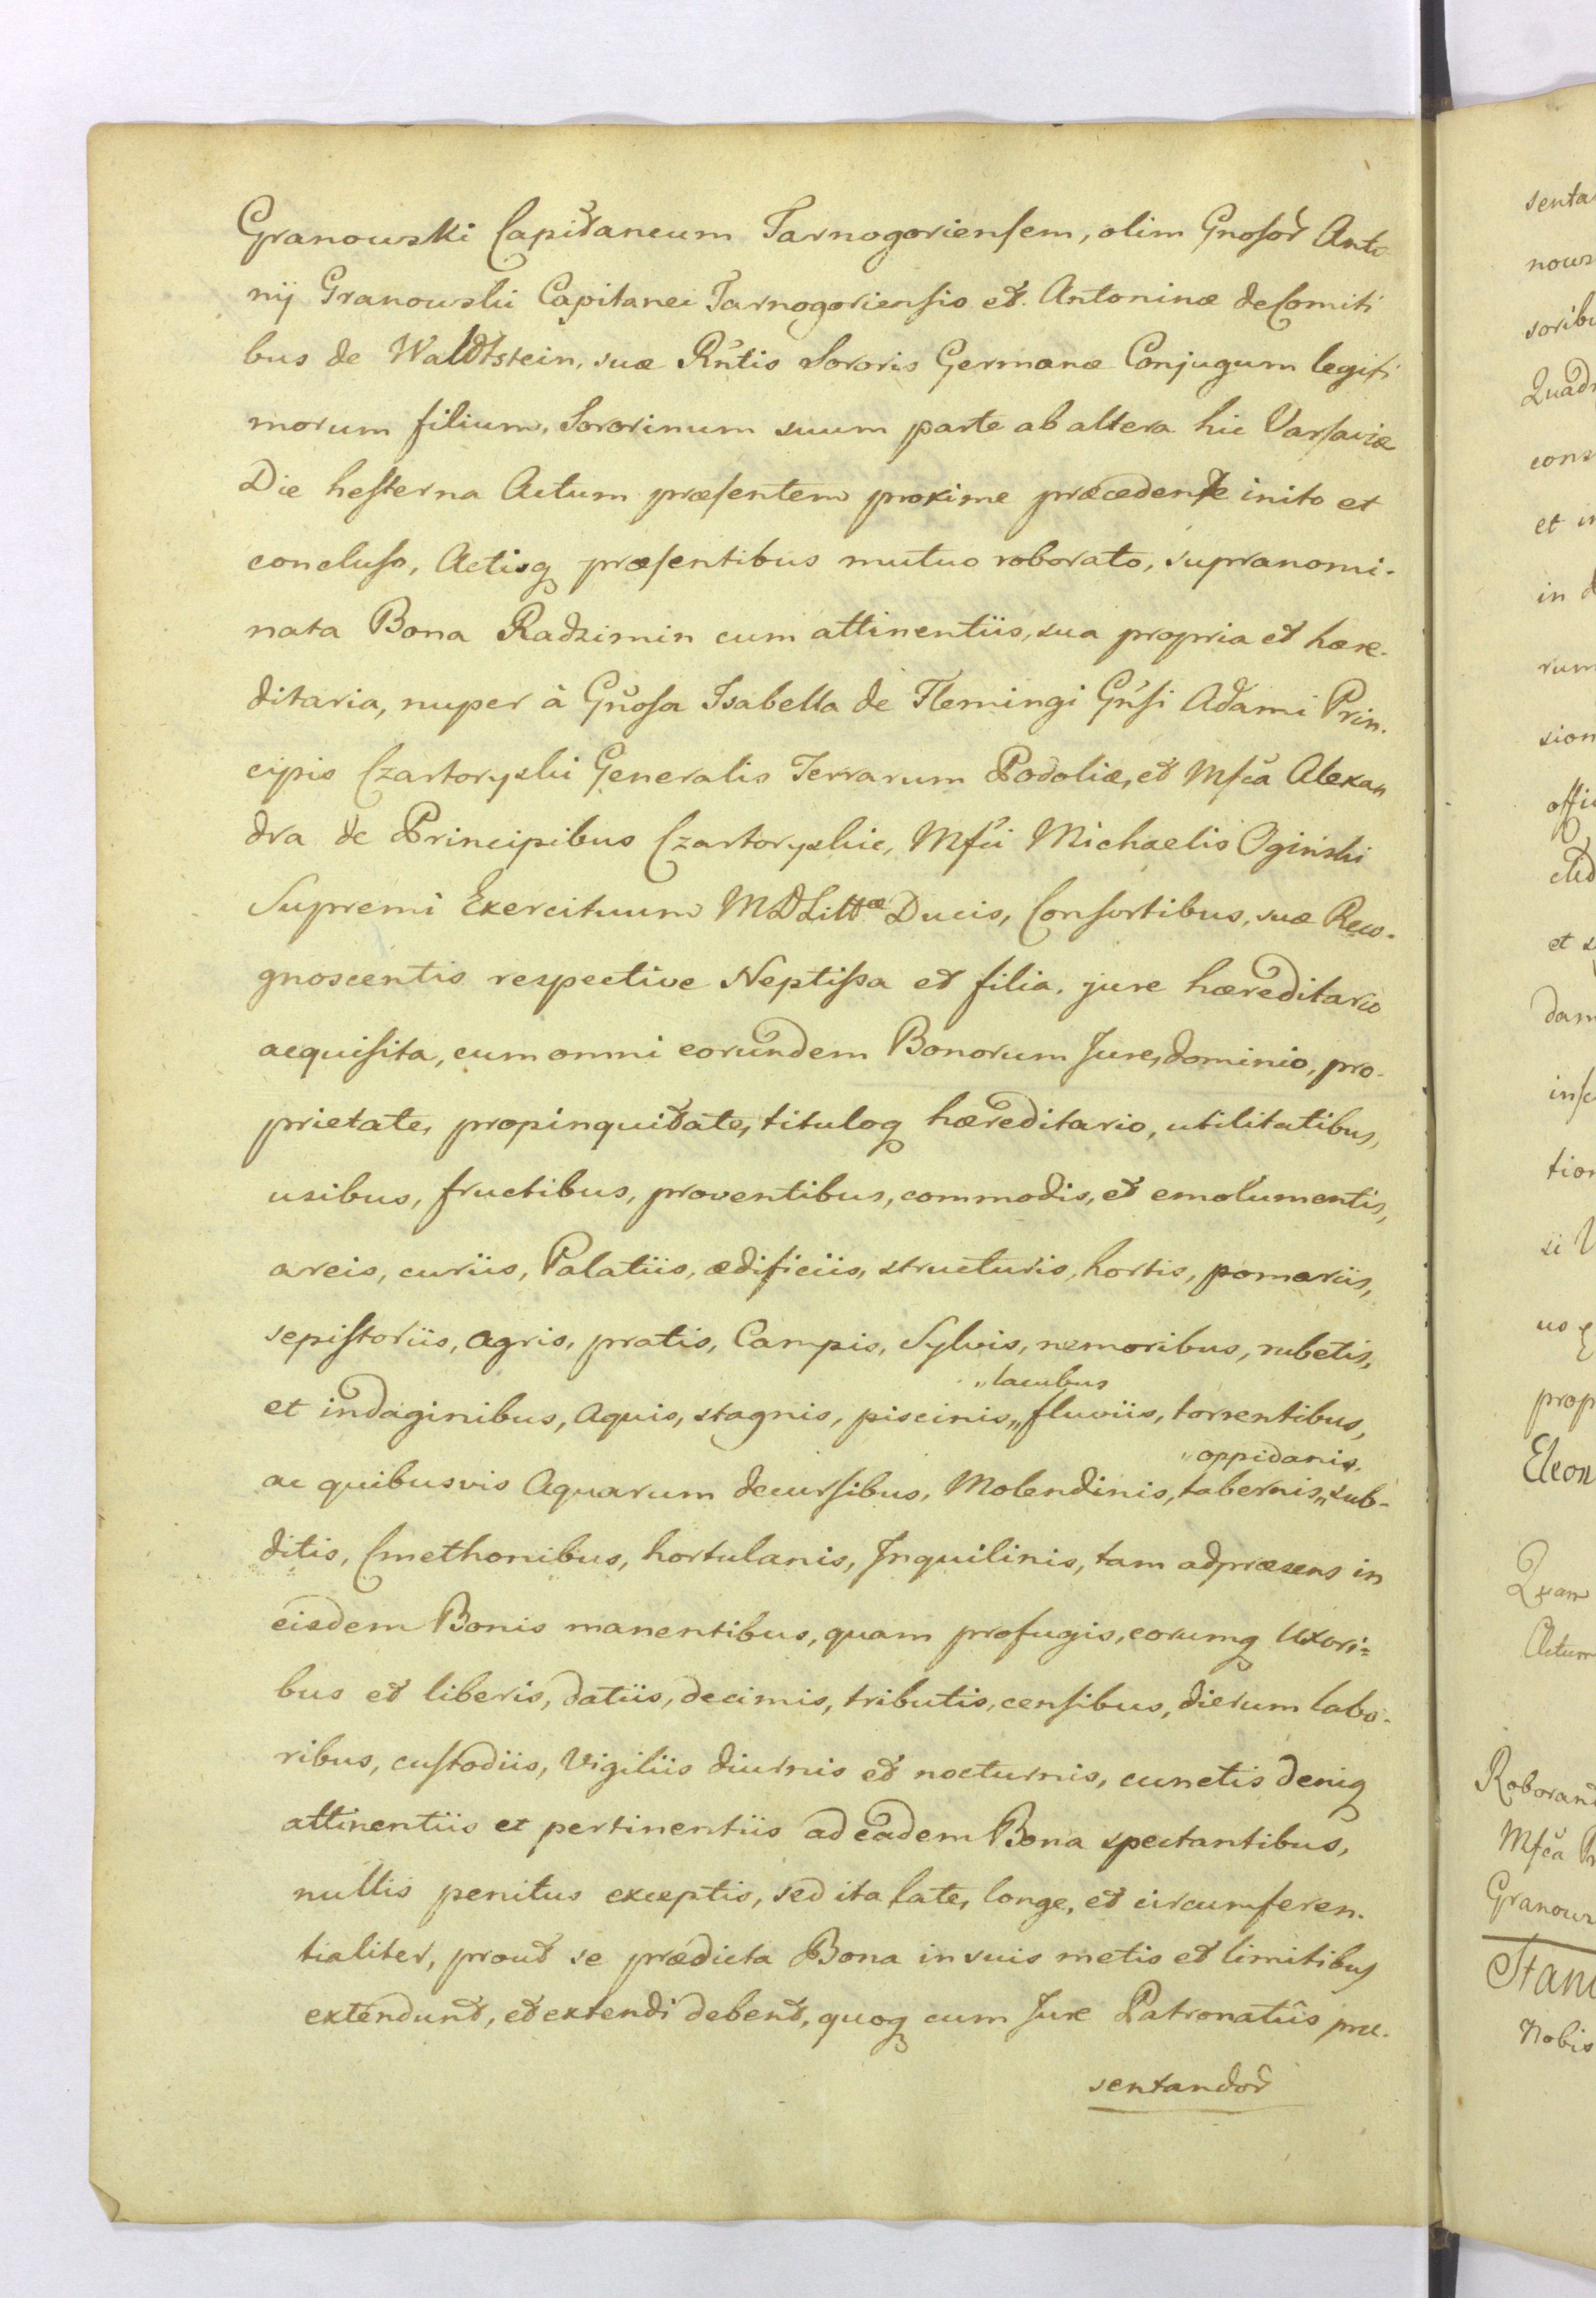 Granowski Capitaneum Tarnogoriensem, olim Gnosor Anto
nij Granowskii Capitanei Tarnogoriensis et Antoninæ de Comiti
bus de Waldtstein, suæ Rntis Sororis Germanæ Conjugum legiti
morum filium, Sororinum suum parte ab altera hic Varsaviæ
Die hesterna Actum præsentem proxime præcedente inito et
concluso, Actisq præsentibus mutuo roborato, supranomi-
nata Bona Radzimin cum attinentiis, sua propria et hære-
ditaria, nuper à Gnosa Isabella de Flemingi Gnsi Adami Prin-
cipis Czartoryskii Generalis Terrarum Podoliæ, et Mfca Alexan
dra de Principibus Czartoryskie, Mfci Michaelis Oginski
Supremi Exercituum MDLittæ Ducis, Consortibus, suæ Reco-
gnoscentis respective Neptissa et filia, jure hæreditario
acquisita, cum omni eorundem Bonorum Jure, dominio, pro-
prietate, propinquitate, tituloq hæreditario, utilitatibus,
usibus, fructibus, proventibus, commodis, et emolumentis,
areis, curiis, Palatiis, ædificiis, structuris, hortis, pomariis,
sepistoriis, agris, pratis, Campis, Sylvis, nemoribus, rubetis,
„lacubus
et indaginibus, Aquis, stagnis, piscinis„ fluviis, torrentibus,
„oppidanis,
ac quibusvis Aquarum decursibus, Molendinis, tabernis„ sub-
ditis, Cmethonibus, hortulanis, Inquilinis, tam adpræsens in
eisdem Bonis manentibus, quam profugis, eorumq Uxori=
bus et liberis, datiis, decimis, tributis, censibus, dierum labo-
ribus, custodiis, Vigiliis diurnis et nocturnis, cunctis deniq
attinentiis et pertinentiis ad eadem Bona spectantibus,
nullis penitus exceptis, sed ita late, longe, et circumferen-
tialiter, prout se prædicta Bona in suis metis et limitibus
extendunt, et extendi debent, quoq cum Jure Patronatûs præ-
sentandor
senta
nows
soribu
Quadr
cons
et in
in d
rum
sion
offi
et s
dam
tion
si V
us
prop
Eleon
Quam
Actum
Roborand
Mfca Pr
Granows
Stani
Nobis